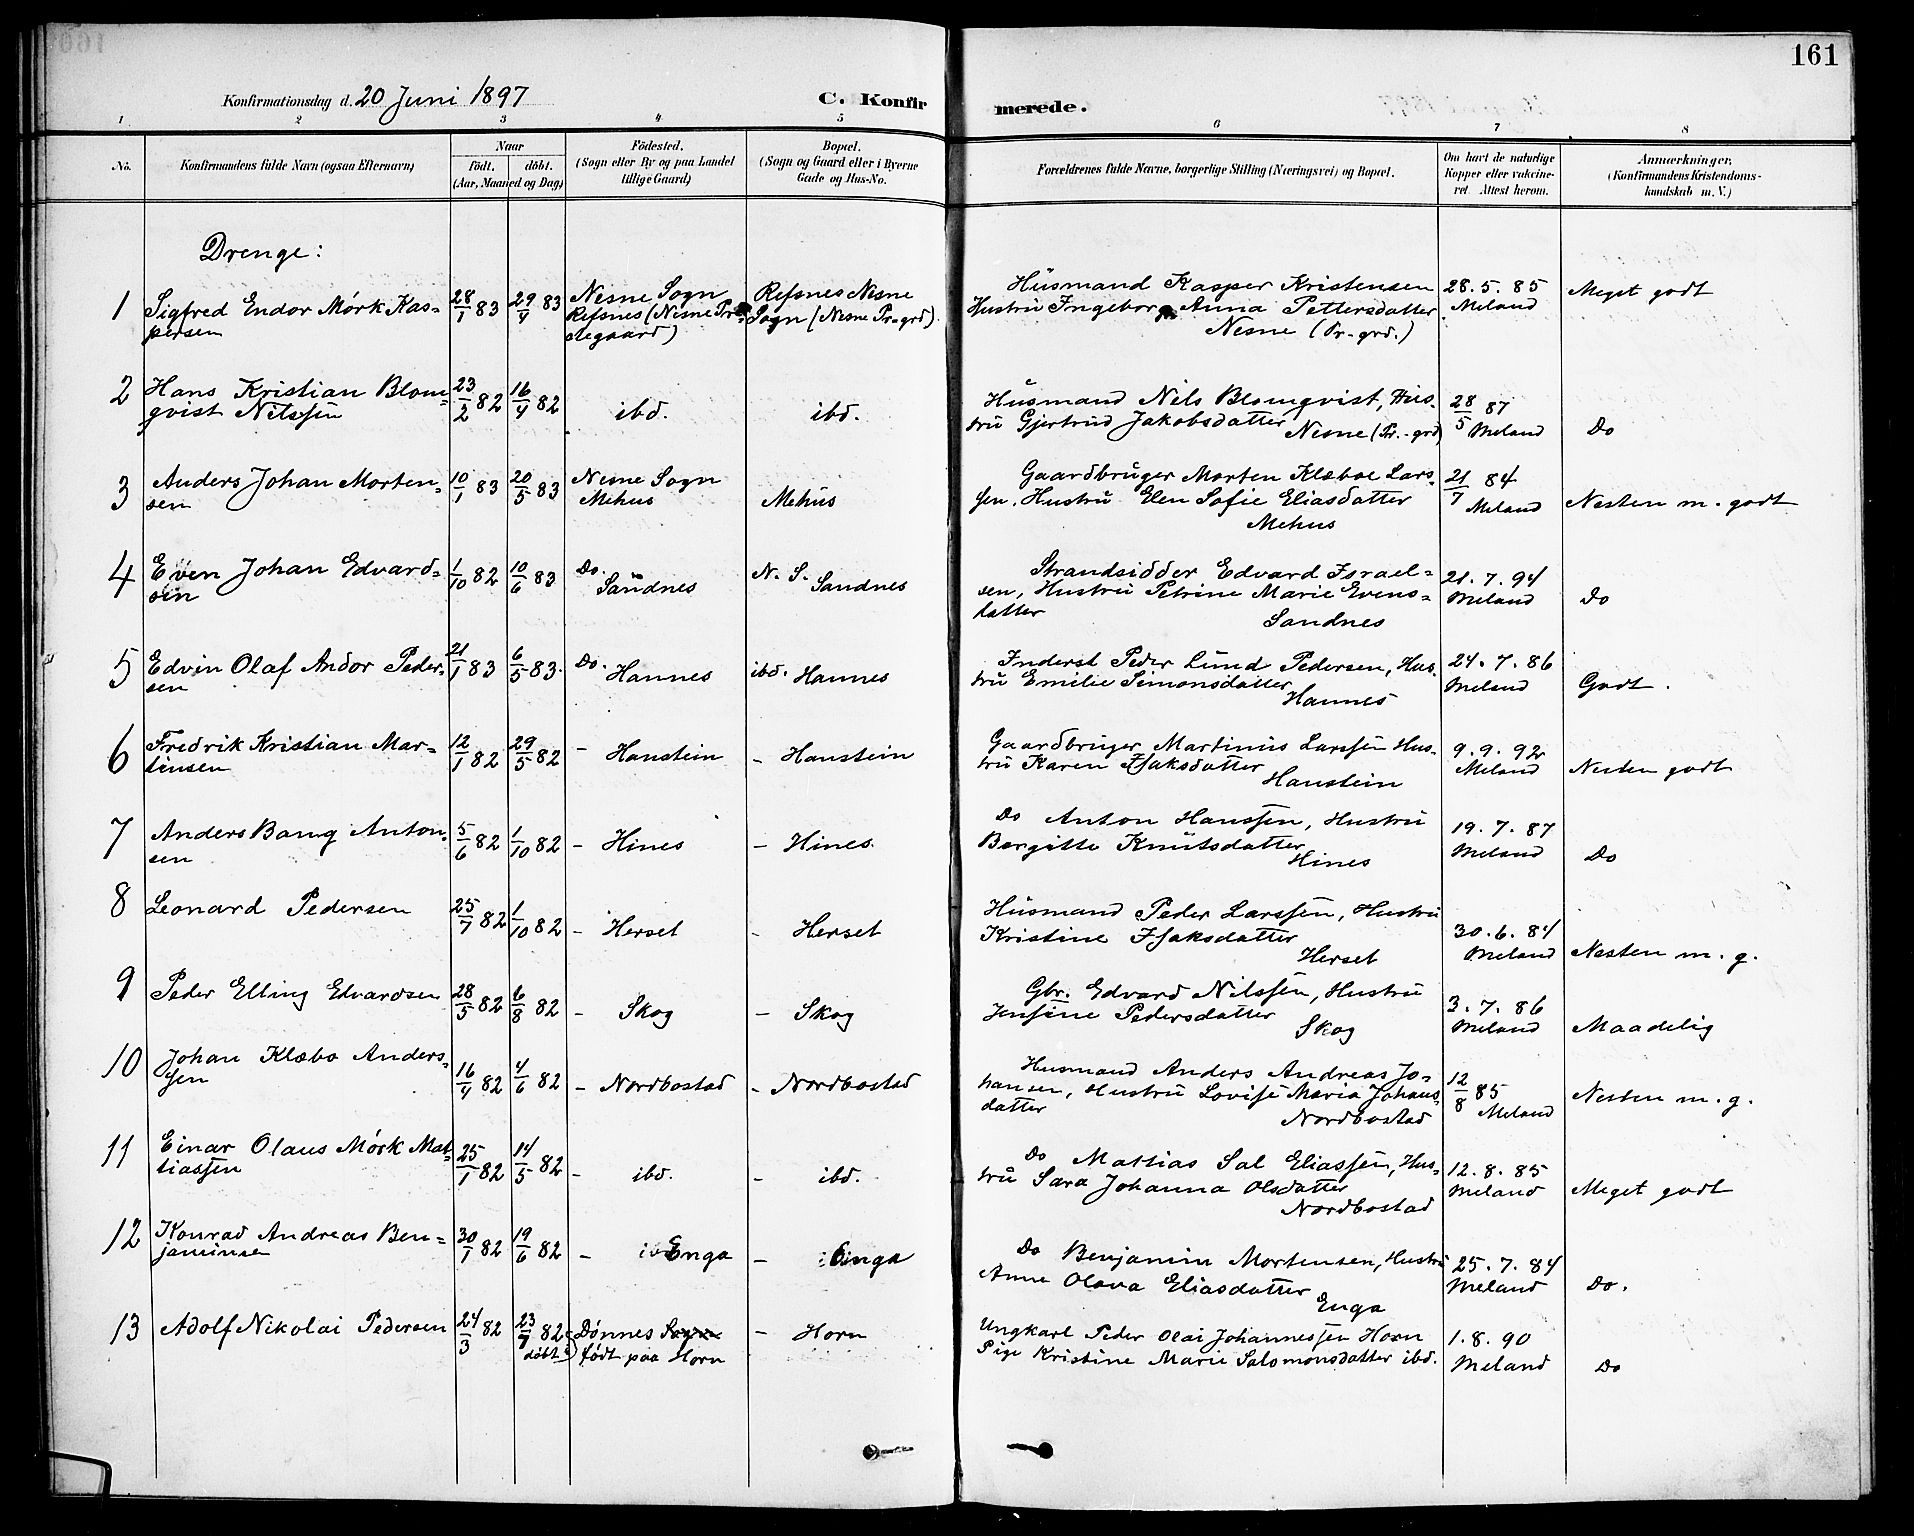 161
Konfirmationsdag d. 20 Juni 1897
C. Konfir
merede.
1 2 3 4 5 6 7 8
No.
Konfirmandens fulde Navn (ogsaa Efternavn)
Naar
födt. döbt.
(Aar, Maaned og Dag)
Födested.
(Sogn eller By og paa Landet
tillige Gaard)
Bopæl.
(Sogn og Gaard eller i Byerne
Gade og Hus-No.
Forældrenes fulde Navne, borgerlige Stilling (Næringsvei) og Bopæl.
Om havt de naturlige
Kopper eller vakcine-
ret. Attest herom.
Anmærkninger,
(Konfirmandens Kristendoms-
kundskab m. V.)
Drenge:
1 Sigfred Endor Mörk Kas-
persen
28/1 83 29/4 83
Nesne Sogn
Refsnes (Nesne Præ-
stegaard)
Refsnes Nesne
Sogn (Nesne Pr-grd)
Husmand Kasper Kristensen
Hustru Ingeborg Anna Pettersdatter
Nesne (Pr-grd.)
28. 5. 85
Meland
Meget godt
2 Hans Kristian Blom-
qvist Nilssen
23/2 82 16/4 82
ibd.
ibd.
Husmand Nils Blomqvist, Hus-
tru Gjertrud Jakobsdatter
Nesne (Pr.-grd)
28/5 87
Meland
Do
3 Anders Johan Morten-
sen
10/1 83 20/5 83
Nesne Sogn
Mehus
Mehus
Gaardbruger Morten Klæboe Lars-
sen, Hustru Elen Sofie Eliasdatter
Mehus
21/7 84
Meland
Nesten m. godt
4 Even Johan Edvard-
sen
1/10 82 10/6 83
Do.
Sandnes
N. S. Sandnes
Strandsidder Edvard Israel-
sen, Hustru Petrine Marie Evens-
datter
Sandnes
21. 7. 94
Meland
Do
5 Edvin Olaf Andor Peder-
sen
21/1 83 6/5 83.
Do. Hannes
ibd. Hannes
Inderst Peder Lund Pedersen, Hus-
tru Emilie Simonsdatter
Hannes
24. 7. 86
Meland
Godt.
6 Fredrik Kristian Mar-
tinsen
12/1 82 29/5 82
- Hanstein
- Hanstein
Gaardbruger Martinus Larssen Hus-
tru Karen Isaksdatter
Hanstein
9. 9. 92
Meland
Nesten godt
7 Anders Bang Anton-
sen
5/6 82 1/10 82
- Hines
- Hines.
Do Anton Hanssen, Hustru
Bergitte Knutsdatter
Hines
19. 7. 87
Meland
Do
8 Leonard Pedersen
25/7 82 1/10 82
- Herset
- Herset
Husmand Peder Larssen, Hustru
Kristine Isaksdatter
Herset
30. 6. 84
Meland
Nesten m. g.
9 Peder Elling Edvardsen
28/5 82 6/8 82
- Skog
- Skog
Gbr. Edvard Nilssen, Hustru
Jensine Pedersdatter
Skog
3. 7. 86
Meland
Maadelig
10 Johan Klæbo Anders-
sen
16/4 82 4/6 82
- Nordbostad
- Nordbostad
Husmand Anders Andreas Jo-
hansen, Hustru Lovise Maria Johans-
datter
Nordbostad
12/8 85
Meland
Nesten m. g.
11 Einar Olaus Mörk Mat-
tiassen
25/1 82 14/5 82
- ibd.
- ibd.
Do Mattias Sal Eliassen, Hus-
tru Sara Johanna Olsdatter
Nordbostad
12. 8. 85
Meland
Meget godt
12 Konrad Andreas Ben-
jaminsen
30/1 82 19/6 82
- Enga
- Enga
Do Benjamin Mortensen, Hustru
Anne Olava Eliasdatter
Enga
25. 7. 84
Meland
Do.
13 Adolf Nikolai Pedersen
24/3 82 23/7 82
döbt i
Dönnes Sogn
födt paa Horn
- Horn
Ungkarl Peder Olai Johannessen Horn
Pige Kristine Marie Salomonsdatter ibd.
1. 8. 90
Meland
Do